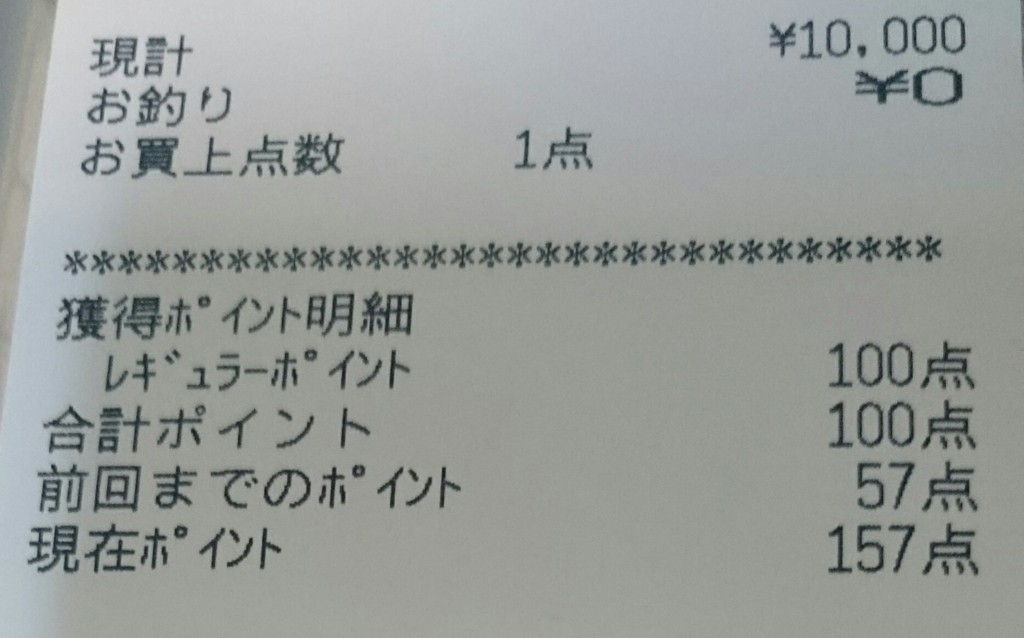 現計 ¥10,000
お釣り ¥0
お買上点数 1点
********************************
獲得ﾎﾟｲﾝﾄ明細
ﾚｷﾞｭﾗｰﾎﾟｲﾝﾄ 100点
合計ポイント 100点
前回までのﾎﾟｲﾝﾄ 57点
現在ﾎﾟｲﾝﾄ 157点